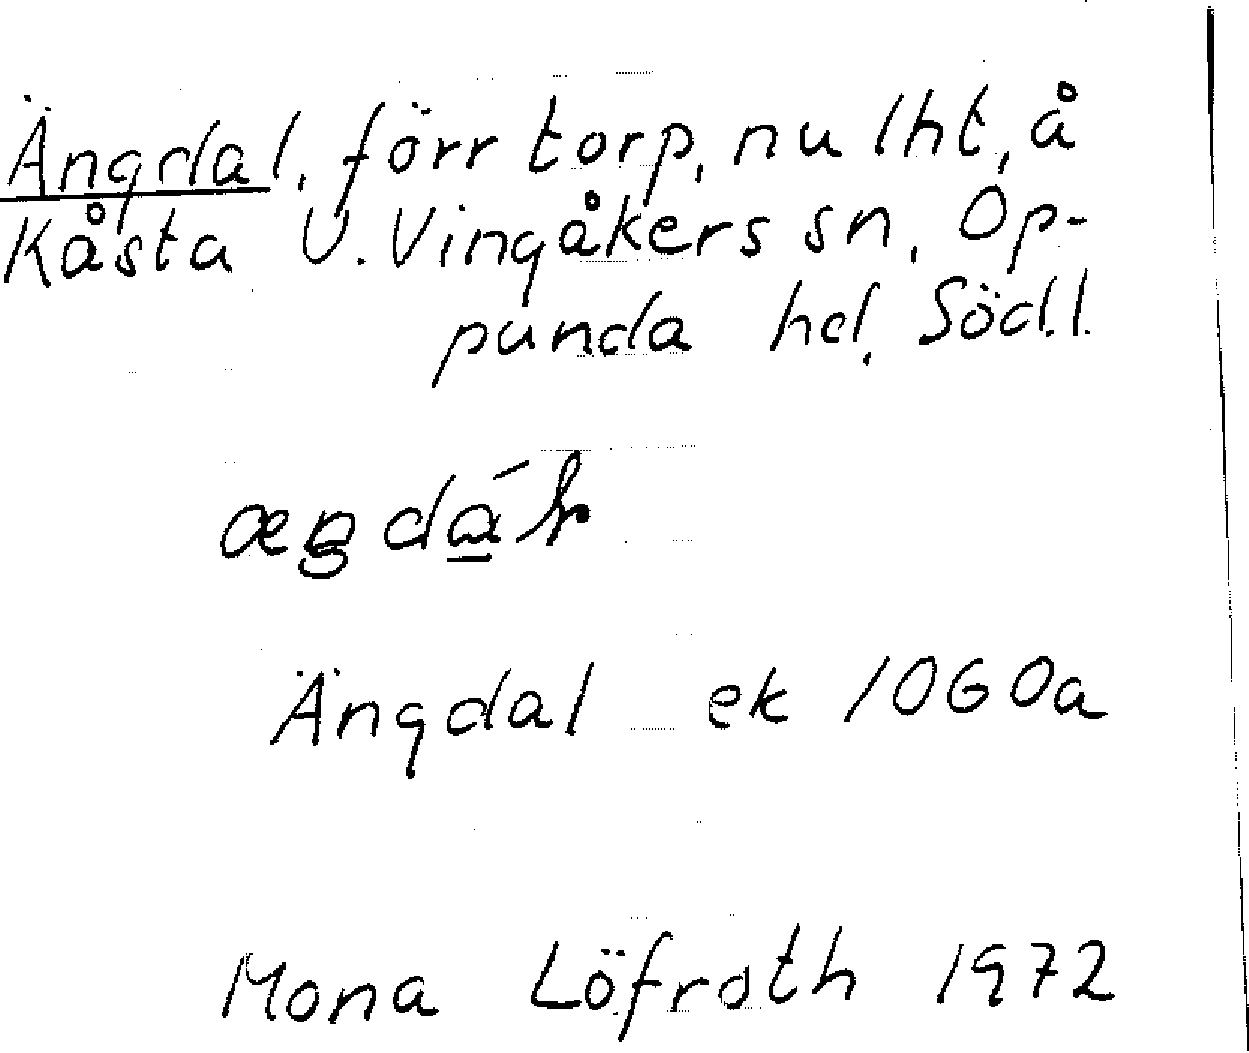 Ängdal, förr torp, nu lht, å
Kåsta V. Vingåkers sn, Op-
punda hd, Södl.
Ängdal ek 10G 0a
Mona Löfroth 1972